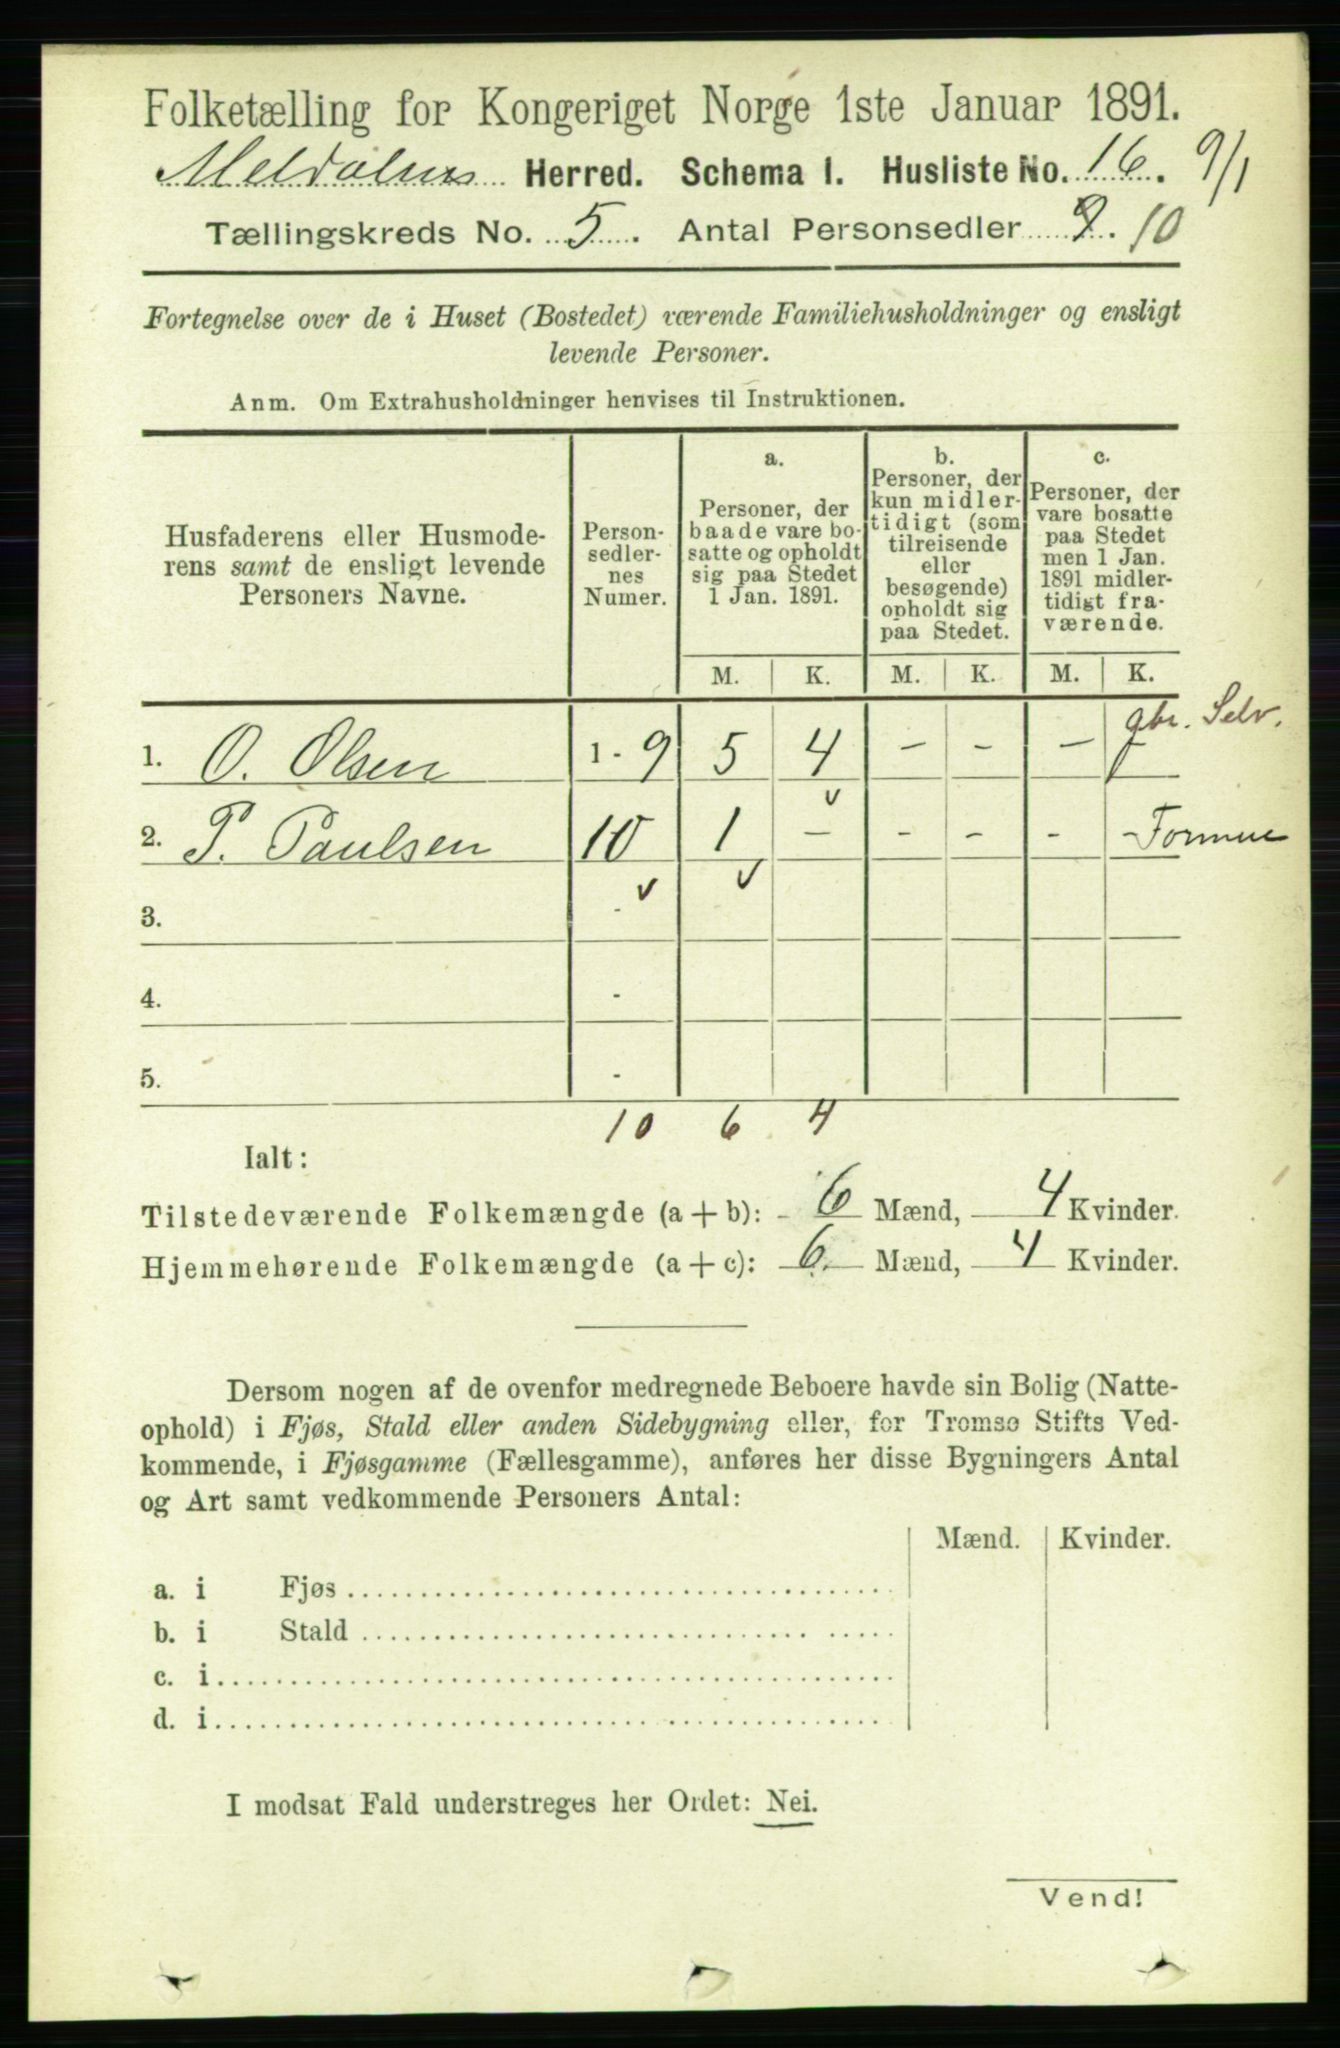 Folketælling for Kongeriget Norge 1ste Januar 1891.
Meldalens Herred. Schema 1. Husliste No. 16. 9/1
Tællingskreds No. 5. Antal Personsedler 9. 10
Fortegnelse over de i Huset (Bostedet) værende Familiehusholdninger og ensligt
levende Personer.
Anm. Om Extrahusholdninger henvises til Instruktionen.
Husfaderens eller Husmode-
rens samt de ensligt levende
Personers Navne.
Person-
sedler-
nes
Numer.
a.
Personer, der
baade vare bo-
satte og opholdt
sig paa Stedet
1 Jan. 1891.
b.
Personer, der
kun midler-
tidigt (som
tilreisende
eller
besøgende)
opholdt sig
paa Stedet.
c.
Personer, der
vare bosatte
paa Stedet
men 1 Jan.
1891 midler-
tidigt fra-
værende.
M. K. M. K. M. K.
gbr. Selv.
1. O. Olsen 1 - 9 5 4 - - - -
v
2. P. Paulsen 10 1 - - - - - Formue
v v
3. -
4. -
5. -
10 6 4
Ialt:
Tilstedeværende Folkemængde (a + b): 6 Mænd, 4 Kvinder.
Hjemmehørende Folkemængde (a + c): 6 Mænd, 4 Kvinder.
Dersom nogen af de ovenfor medregnede Beboere havde sin Bolig (Natte-
ophold) i Fjøs, Stald eller anden Sidebygning eller, for Tromsø Stifts Ved-
kommende, i Fjøsgamme (Fællesgamme), anføres her disse Bygningers Antal
og Art samt vedkommende Personers Antal:
Mænd. Kvinder.
a. i Fjøs
b. i Stald
c. i
d. i
I modsat Fald understreges her Ordet: Nei.
Vend!